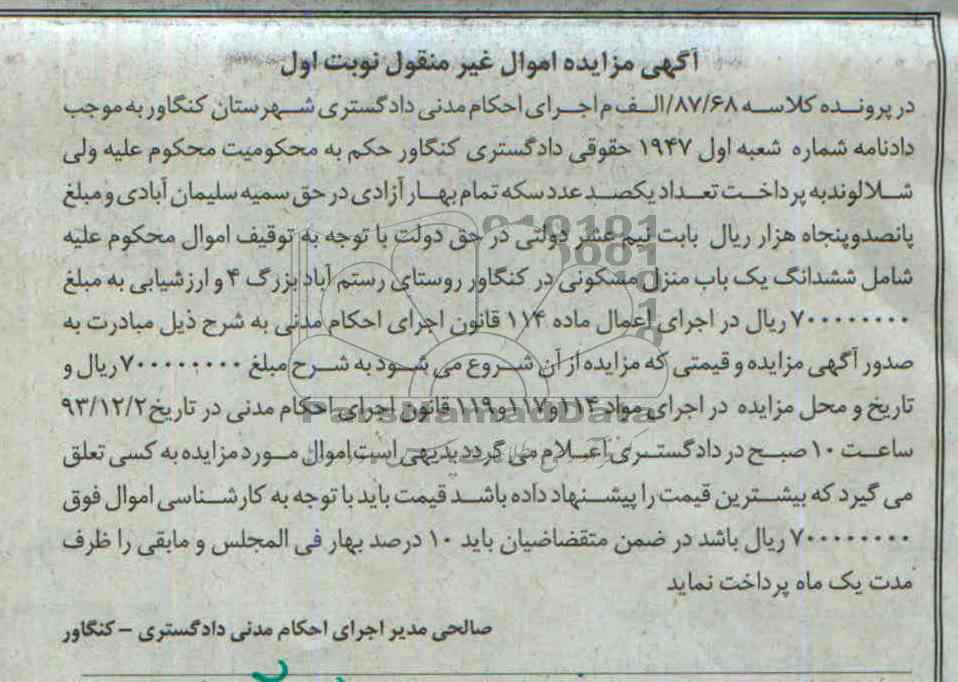 آگهی مزایده اموال غیر منقول نوبت اول
در پرونده کلاسه ۸۷/۶۸/الف م اجرای احکام مدنی دادگستری شهرستان کنگاور به موجب
دادنامه شماره شعبه اول ۱۹۴۷ حقوقی دادگستری کنگاور حکم به محکومیت محکوم علیه ولی
شلالوندبه پرداخت تعداد یکصد عدد سکه تمام بهار آزادی در حق سمیه سلیمان آبادی و مبلغ
پانصدوپنجاه هزار ریال بابت نیم عشر دولتی در حق دولت با توجه به توقیف اموال محکوم علیه
شامل ششدانگ یک باب منزل مسکونی در کنگاور روستای رستم آباد بزرگ ۴ و ارزشیابی به مبلغ
۷۰۰۰۰۰۰۰۰ ریال در اجرای اعمال ماده ۱۱۴ قانون اجرای احکام مدنی به شرح ذیل مبادرت به
صدور آگهی مزایده و قیمتی که مزایده از آن شروع می شود به شرح مبلغ ۷۰۰۰۰۰۰۰۰ ریال و
تاریخ و محل مزایده در اجرای مواد ۱۱۴و۱۱۷و۱۱۹ قانون اجرای احکام مدنی در تاریخ ۹۳/۱۲/۲
ساعت ۱۰ صبح در دادگستری اعلام می گردد بدیهی است اموال مورد مزایده به کسی تعلق
می گیرد که بیشترین قیمت را پیشنهاد داده باشد قیمت باید با توجه به کارشناسی اموال فوق
۷۰۰۰۰۰۰۰۰ ریال باشد در ضمن متقضاضیان باید ۱۰ درصد بهار فی المجلس و مابقی را ظرف
مدت یک ماه پرداخت نماید
صالحی مدیر اجرای احکام مدنی دادگستری – کنگاور
ParsNamadData